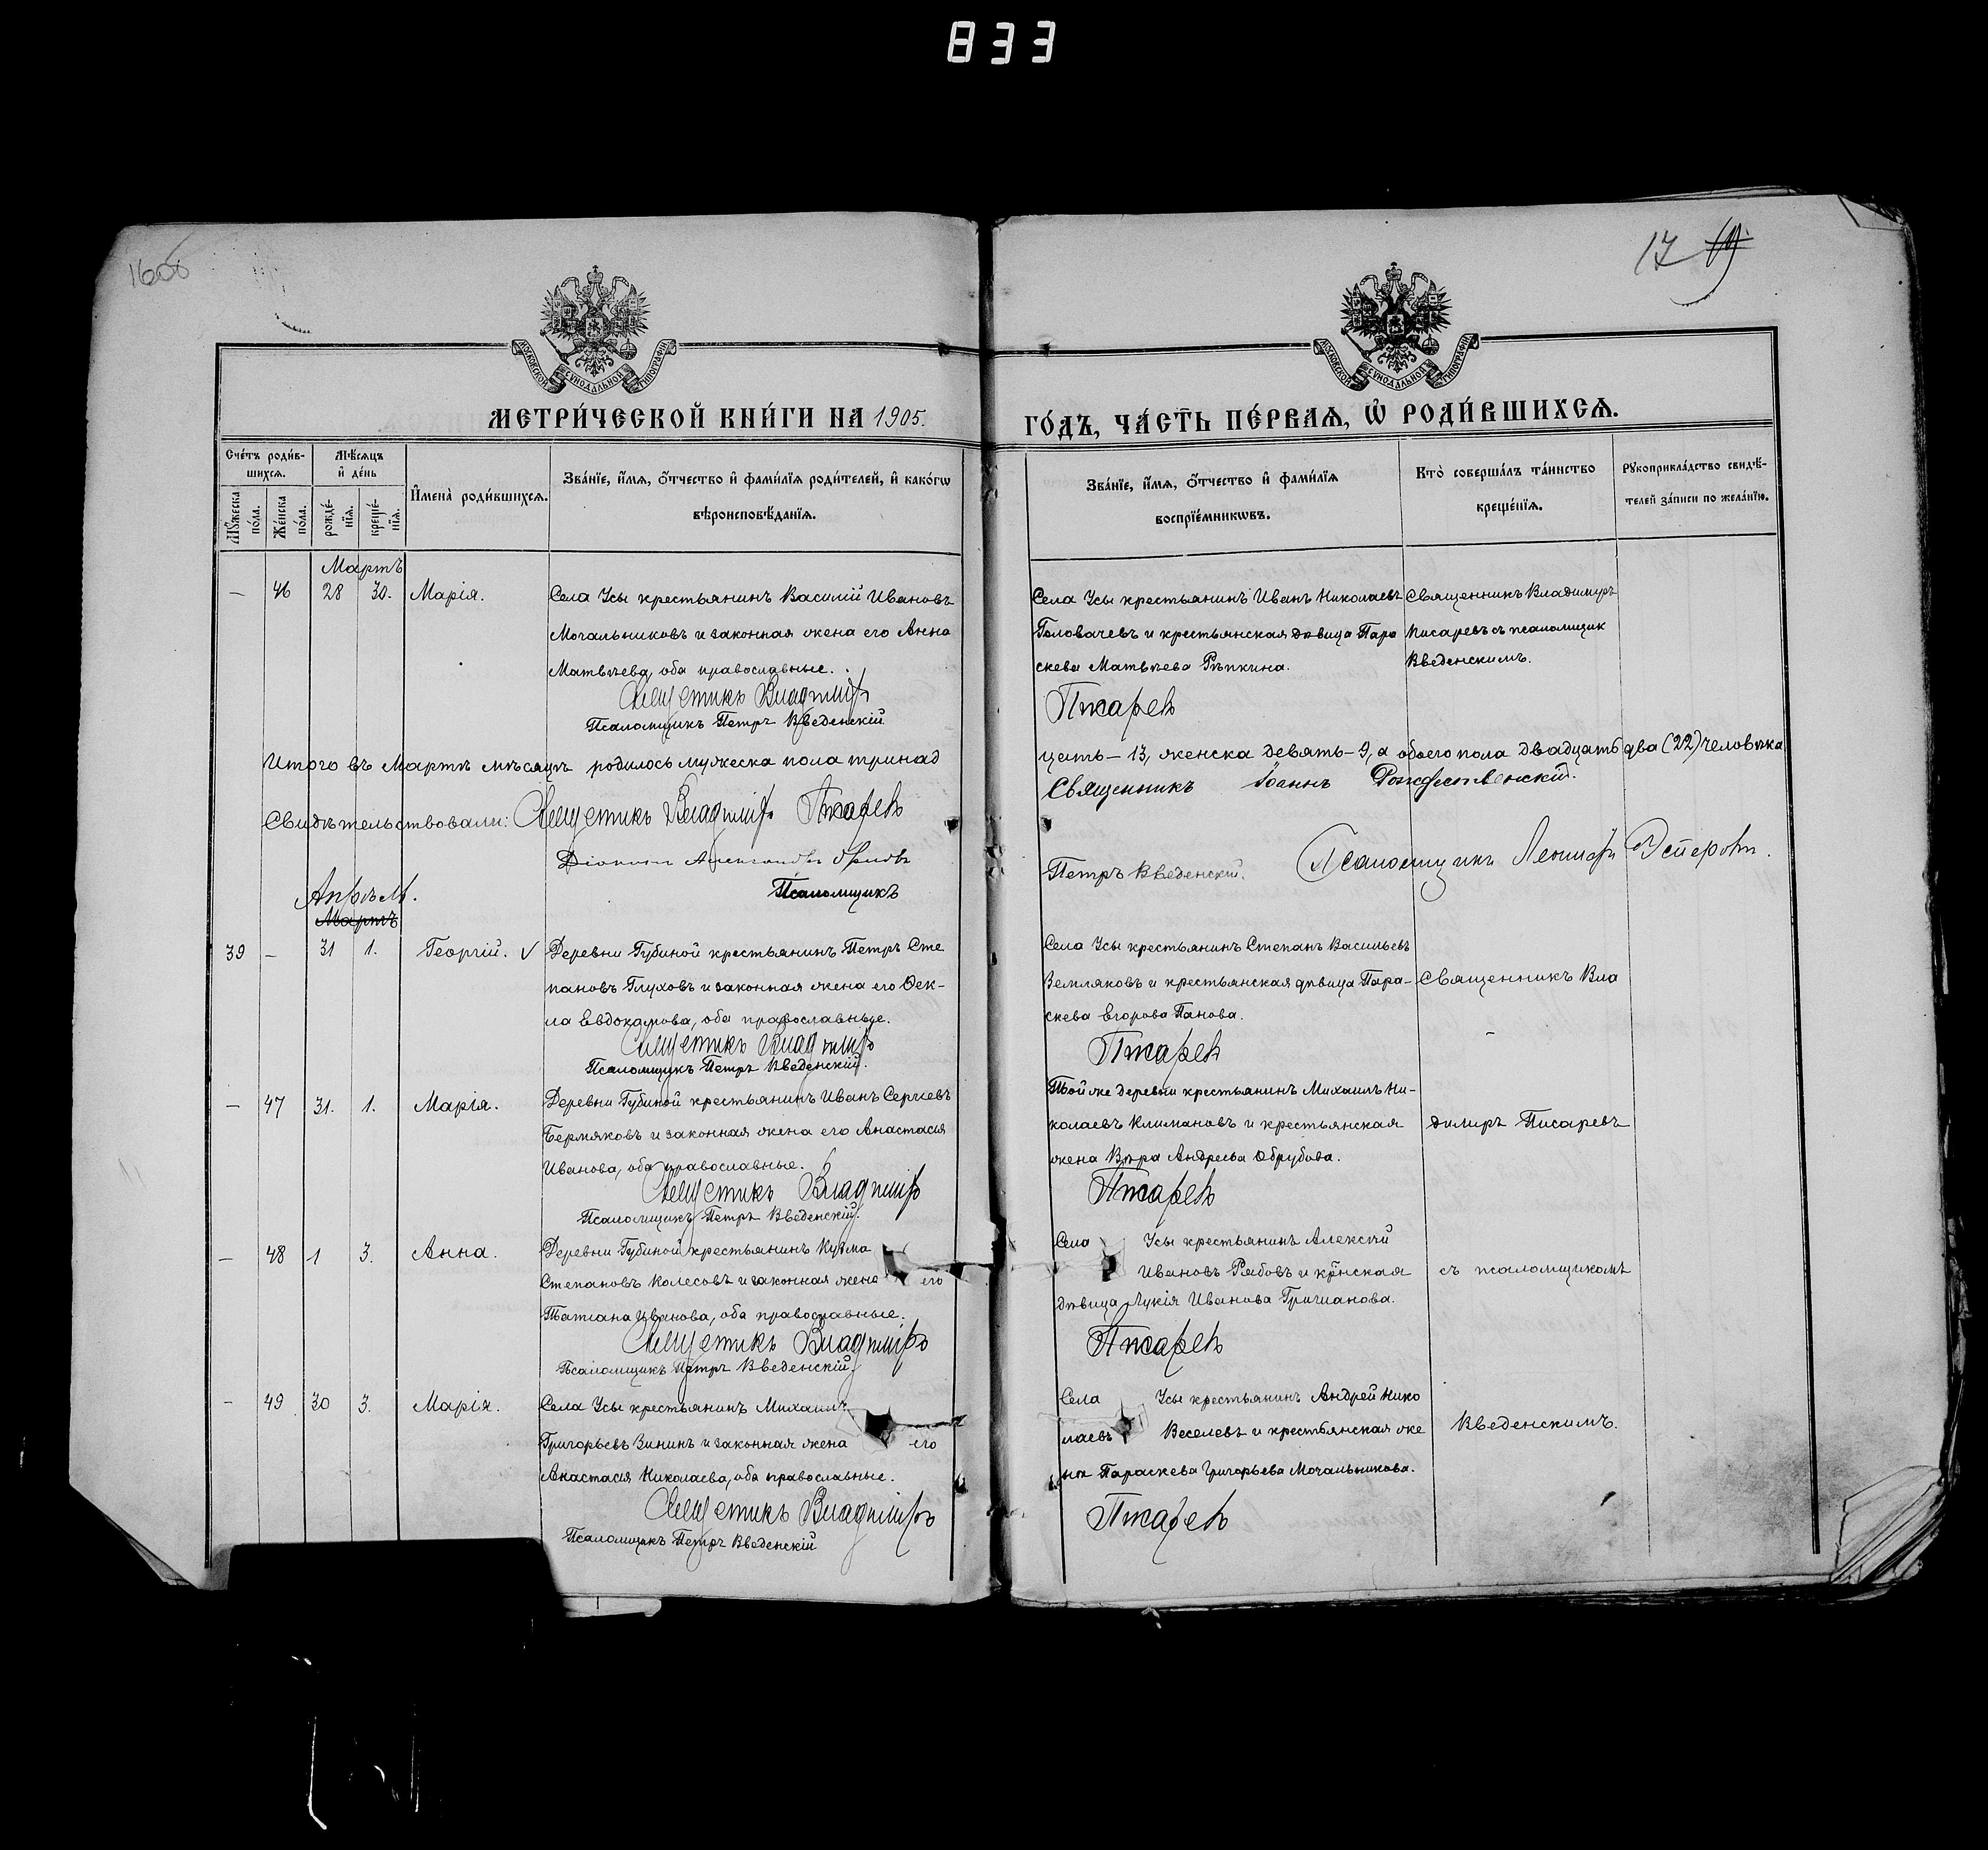 833
1606
17 19
МОСКОВСКОЙ СѴНОДАЛЬНОЙ ТИПОГРАФІИ
МОСКОВСКОЙ СѴНОДАЛЬНОЙ ТИПОГРАФІИ
МЕТРИ́ЧЕСКОЙ КНИ́ГИ НА 1905.
ГО́ДЪ, ЧА́СТЬ ПЕ́РВАѦ, Ѡ҆ РОДИ́ВШИХСѦ.
Сче́тъ роди́в-
шихсѧ.
Мѣ́сѧцъ
и҆ де́нь
Мꙋ́жеска
по́ла.
Же́нска
по́ла.
рожде́-
нїѧ.
креще́-
нїѧ.
И҆мена̀ роди́вшихсѧ.
Зва́нїе, и҆́мѧ, ѻ҆́тчество и҆ фами́лїѧ роди́телей, и҆ како́гѡ
вѣроисповѣ́данїѧ.
Зва́нїе, и҆́мѧ, ѻ҆́тчество и҆ фами́лїѧ
воспрїе́мникѡвъ.
Кто̀ соверша́лъ та́инство
креще́нїѧ.
Рꙋкоприкла́дство свидѣ́-
телей за́писи по жела́нїю.
Мартъ
— 46 28 30. Марія.
Села Усы крестьянинъ Василій Ивановъ
Мочальниковъ и законная жена его Анна
Матвѣева, оба православные.
Священникъ Владиміръ
Псаломщикъ Петръ Введенскій
Села Усы крестьянинъ Иванъ Николаевъ
Головачевъ и крестьянская дѣвица Пара
скева Матвѣева Рѣпкина.
Писаревъ
Священникъ Владиміръ
Писаревъ съ псаломщик
Введенскимъ.
Итого въ Мартѣ мѣсяцѣ родилось мужеска пола тринад
цать — 13, женска девять — 9, а обоего пола двадцать два (22) человѣка
Свидѣтельствовали: Священникъ Владиміръ Писаревъ
Священникъ Іоаннъ Рождественскій.
Діаконъ Александръ
Псаломщикъ
Петръ Введенскій. Псаломщикъ
Апрѣль.
Мартъ
39 — 31 1. Георгій. √
Деревни Губиной крестьянинъ Петръ Сте
пановъ Глуховъ и законная жена его Ѳек-
ла Евдокимова, оба православные.
Священникъ Владиміръ
Псаломщикъ Петръ Введенскій.
Села Усы крестьянинъ Степанъ Васильевъ
Земляковъ и крестьянская дѣвица Пара-
скева Егорова Панова.
Писаревъ
Священникъ Вла
— 47 31. 1. Марія.
Деревни Губиной крестьянинъ Иванъ Сергѣевъ
Бермяковъ и законная жена его Анастасія
Иванова, оба православные.
Священникъ Владиміръ
Псаломщикъ Петръ Введенскій.
Той же деревни крестьянинъ Михаилъ Ни-
колаевъ Климановъ и крестьянская
жена Вѣра Андреева Обрубова.
Писаревъ
диміръ Писаревъ
— 48 1 3. Анна.
Деревни Губиной крестьянинъ Кузма
Степановъ Колесовъ и законная жена его
Татіана Иванова, оба православные.
Священникъ Владиміръ
Псаломщикъ Петръ Введенскій.
Села Усы крестьянинъ Алексѣй
Ивановъ Рябовъ и кр̃нская
дѣвица Лукія Иванова Гришанова.
Писаревъ
съ псаломщикомъ
— 49 30 3. Марія.
Села Усы крестьянинъ Михаилъ
Григорьевъ Зининъ и законная жена его
Анастасія Николаева, оба православные.
Священникъ Владиміръ
Псаломщикъ Петръ Введенскій
Села Усы крестьянинъ Андрей Нико
лаевъ Веселевъ и крестьянская же
на Параскева Григорьева Мочальникова.
Писаревъ
Введенскимъ.